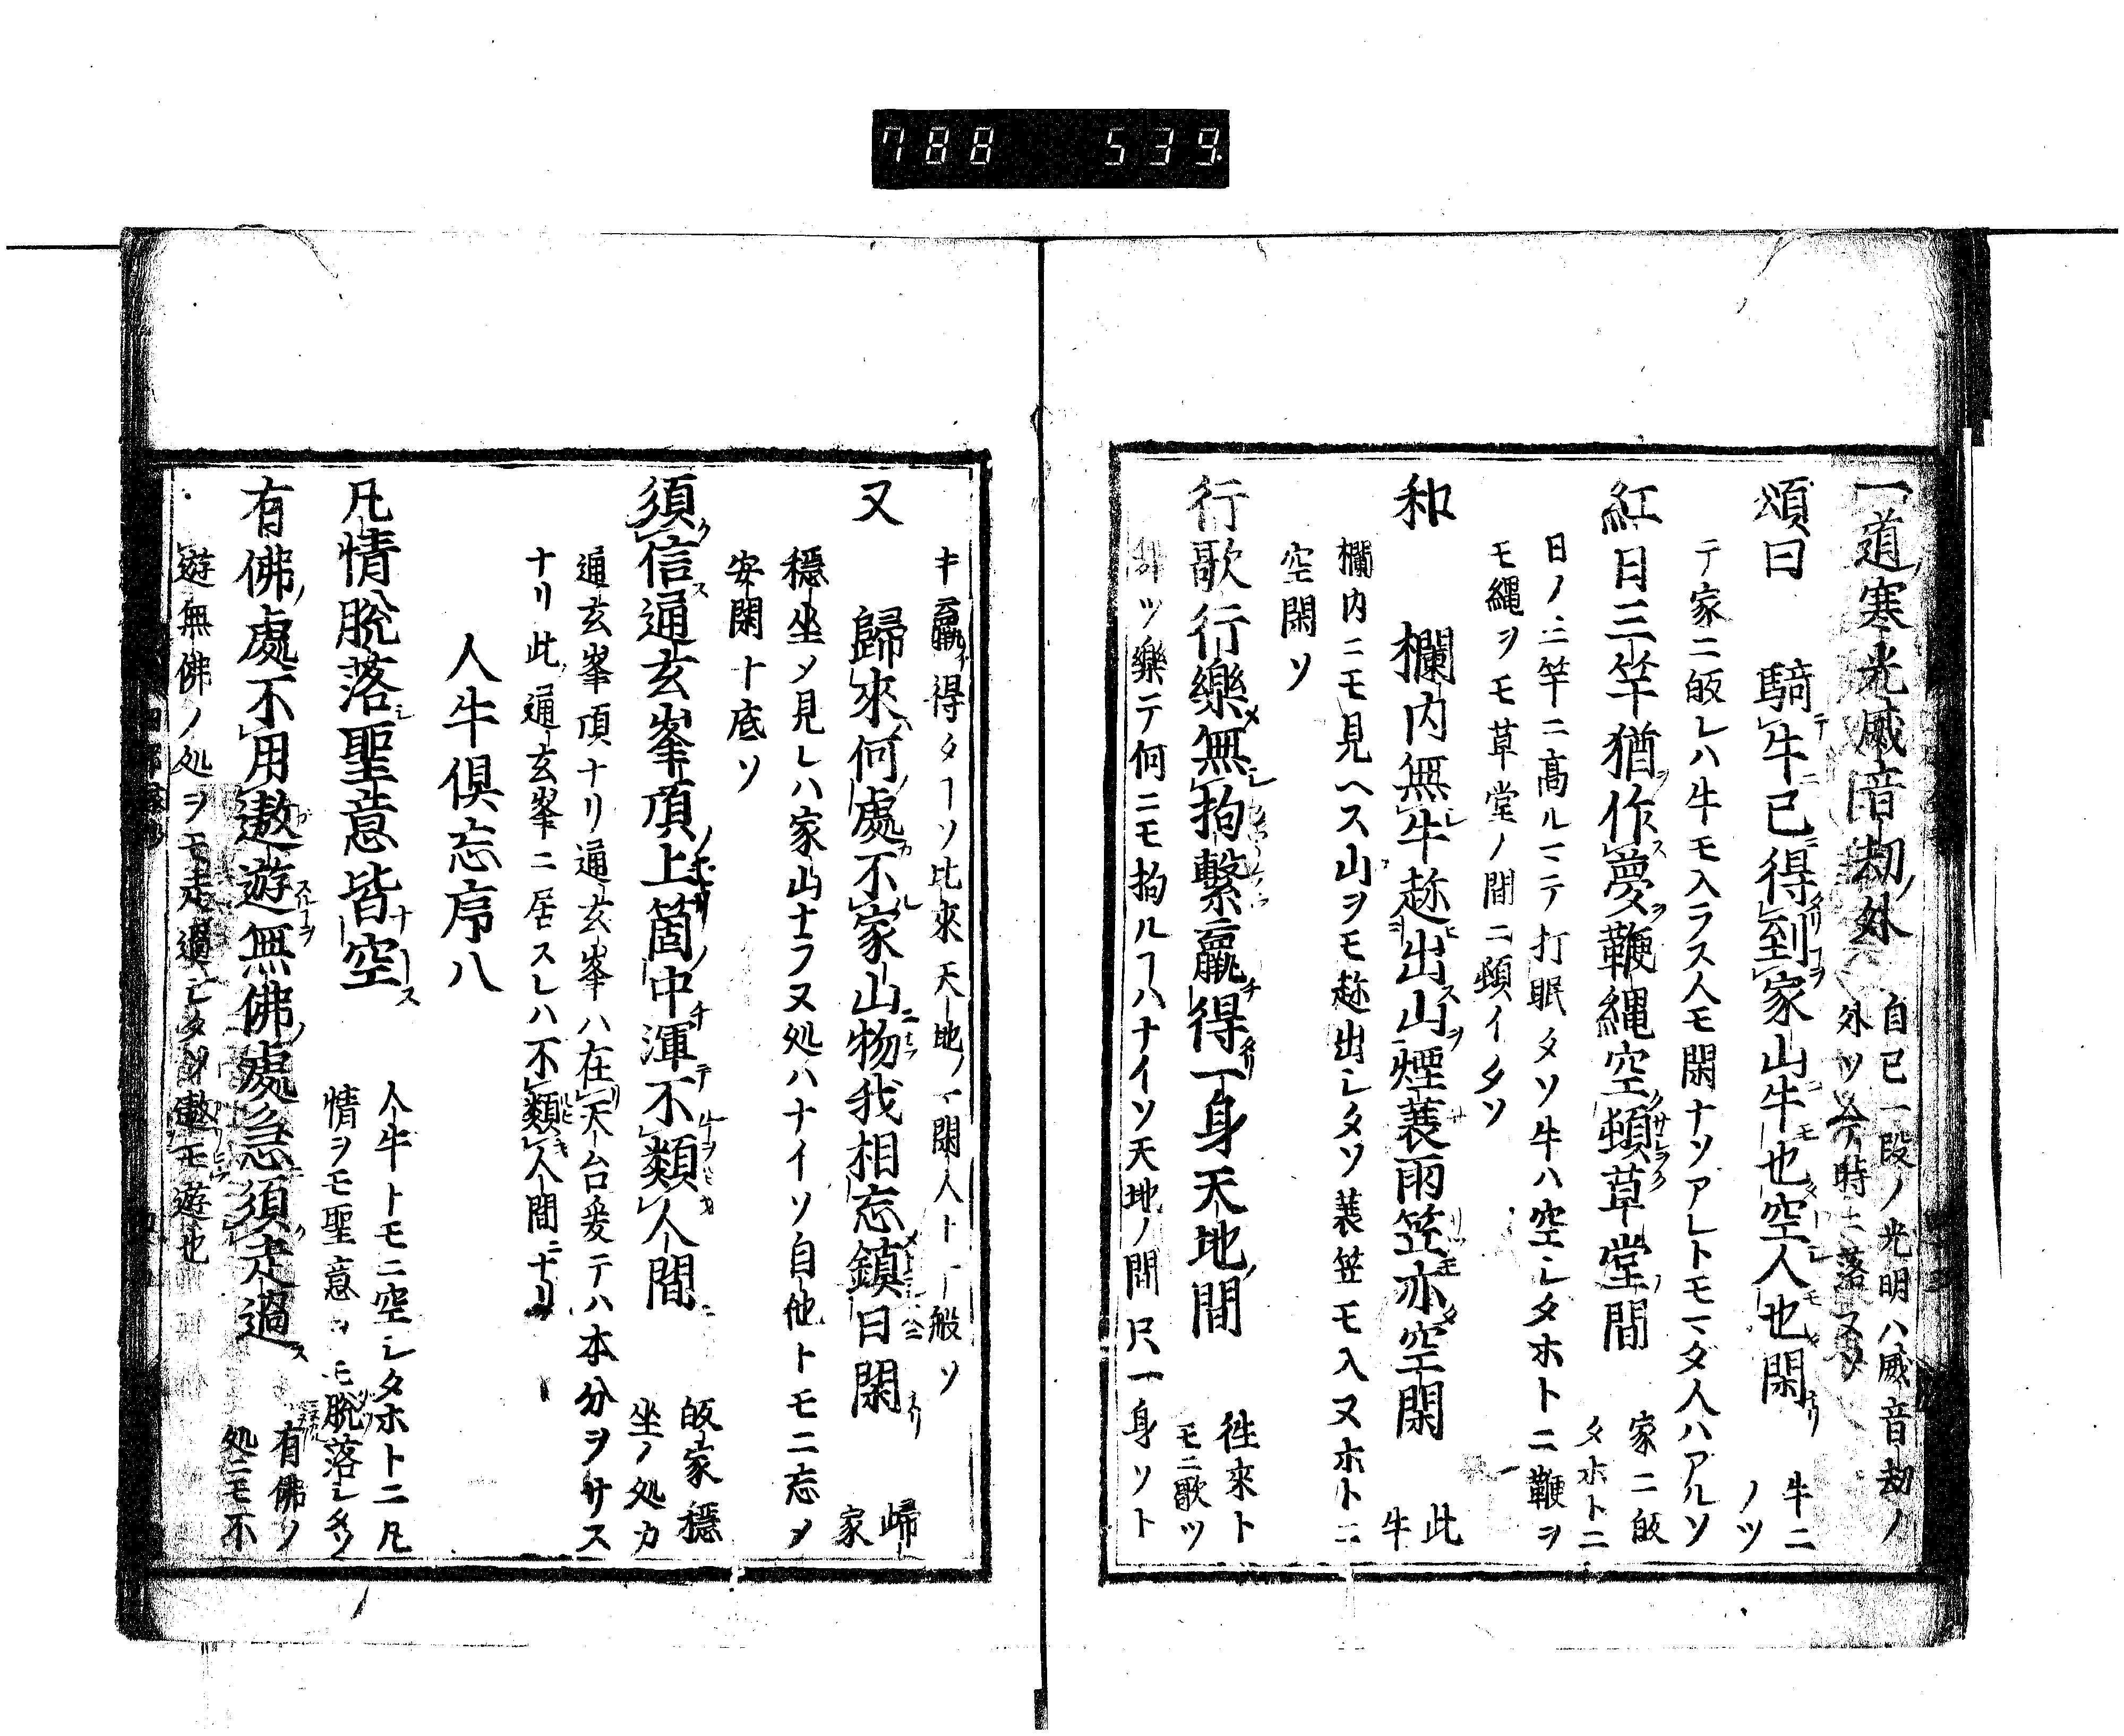 788 539
一道寒光威音劫外 自已一段ノ光明ハ威音劫ノ
外ツ今時ニ落ヌソ
頌曰 騎牛已得到家山牛也空人也閑 牛ニ
ノツ
テ家ニ皈レハ牛モ入ラス人モ閑ナソアレトモマタ人ハアルソ
紅日三竿猶作夢鞭縄空頓草堂間 家ニ皈
タホトニ
日ノ三竿ニ高ルマテ打眠タソ牛ハ空シタホトニ鞭ヲ
モ縄ヲモ草堂ノ間ニ頓イタソ
和 欄内無牛趂出山煙蓑雨笠亦空閑 此
牛
欄内ニモ見ヘス山ヲモ趂出シタソ蓑笠モ入ヌホトニ
空閑ソ
行歌行樂無拘繫贏得一身天地間 徃來ト
モニ歌ツ
ツ樂テ何ニモ拘ルヿハナイソ天地ノ間只一身ソト
キ贏得タヿソ比來天地ノ一閑人ト一般ソ
又 歸來何處不家山物我相忘鎮日閑 歸
家
穩坐メ見レハ家山ナラヌ処ハナイソ自他トモニ忘メ
安閑ト底ソ
須信通玄峯頂上箇中渾不類人間 皈家穩
坐ノ処カ
通玄峯頂ナリ通玄峯ハ在天台爰テハ本分ヲサス
ナリ此通玄峯ニ居スレハ不類人間ニナリ
人牛倶忘序八
凡情脫落聖意皆空 人牛トモニ空シタホトニ凡
情ヲモ聖意ヲモ脫落シタソ
有佛處不用遨遊無佛處急須走過 有佛ノ
処ニモ不
遊無佛ノ処ヲモ走過シタソ遨モ遊也